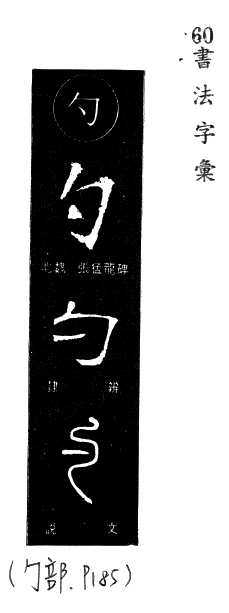 60
書法字彙
勺
勺
北魏 張猛龍碑
勺
隸辨
勺
說文
(勹部. P185)